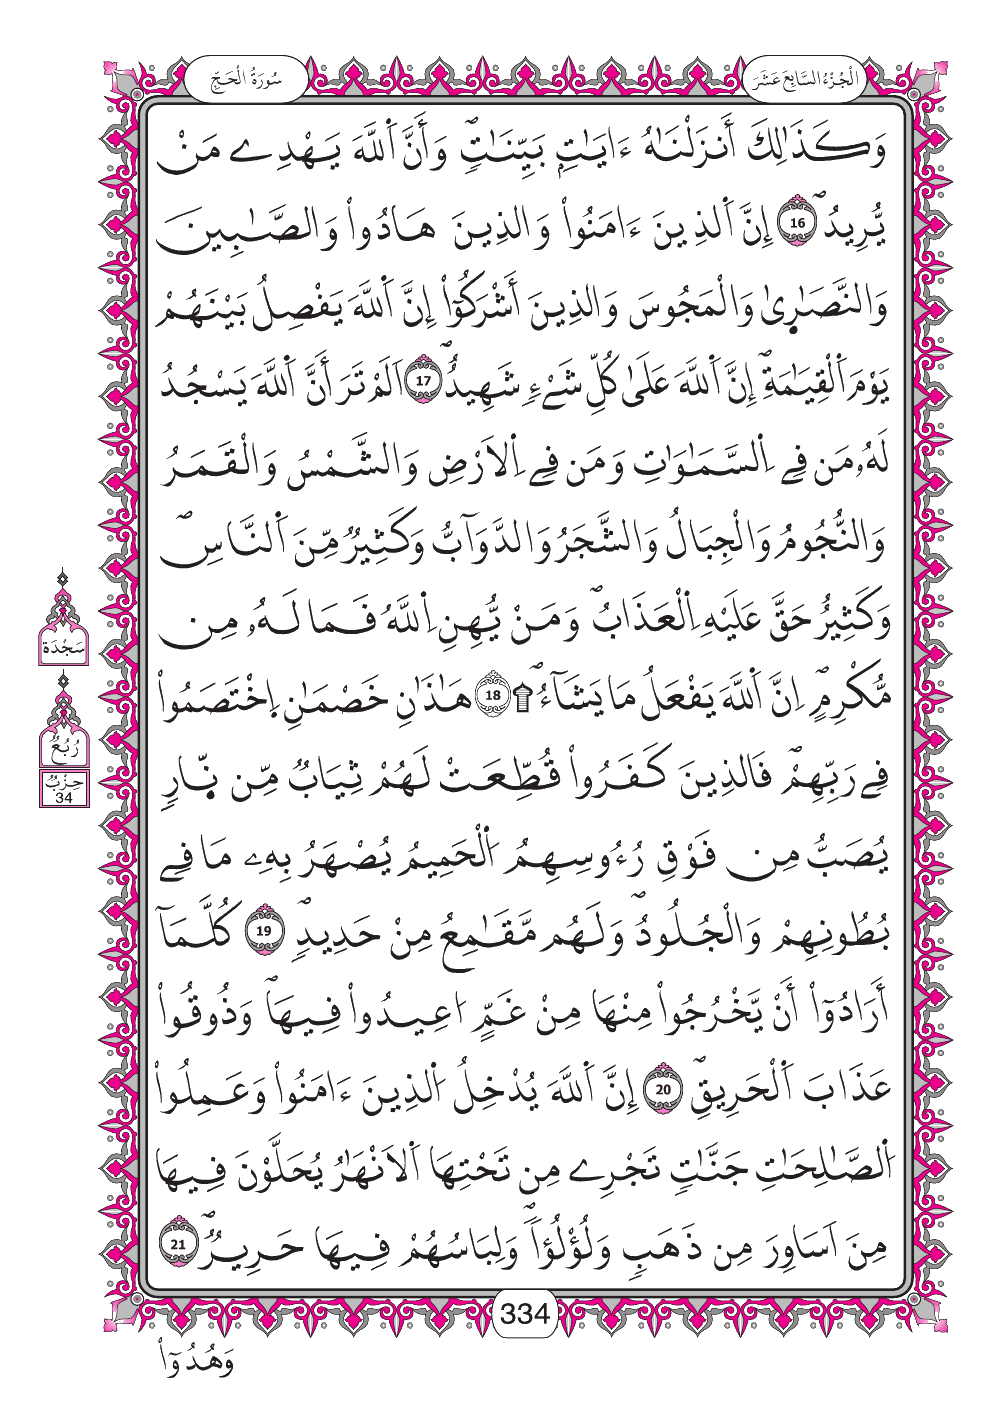 الْجُزْءُ السَّابِعَ عَشَرَ
سُورَةُ الْحَجِّ
وَكَذَٰلِكَ أَنزَلْنَٰهُ ءَايَٰتِۢ بَيِّنَٰتٖۖ وَأَنَّ اَ۬للَّهَ يَهْدِے مَنْ
يُّرِيدُۖ 16 إِنَّ اَ۬لذِينَ ءَامَنُواْ وَالذِينَ هَادُواْ وَالصَّٰبِينَ
وَالنَّصَٰر۪ىٰ وَالْمَجُوسَ وَالذِينَ أَشْرَكُوٓاْ إِنَّ اَ۬للَّهَ يَفْصِلُ بَيْنَهُمْ
يَوْمَ اَ۬لْقِيَٰمَةِۖ إِنَّ اَ۬للَّهَ عَلَىٰ كُلِّ شَےْءٖ شَهِيدٌۖ 17 اَلَمْ تَرَ أَنَّ اَ۬للَّهَ يَسْجُدُ
لَهُۥ مَن فِے اِ۬لسَّمَٰوَٰتِ وَمَن فِے اِ۬لَارْضِ وَالشَّمْسُ وَالْقَمَرُ
وَالنُّجُومُ وَالْجِبَالُ وَالشَّجَرُ وَالدَّوَآبُّ وَكَثِيرٌ مِّنَ اَ۬لنَّاسِۖ
وَكَثِيرٌ حَقَّ عَلَيْهِ اِ۬لْعَذَابُۖ وَمَنْ يُّهِنِ اِ۬للَّهُ فَمَا لَهُۥ مِن
مُّكْرِمٍۖ اِنَّ اَ۬للَّهَ يَفْعَلُ مَا يَشَآءُۖ ۩ 18 هَٰذَٰنِ خَصْمَٰنِ اِ۪خْتَصَمُواْ
فِے رَبِّهِمْۖ فَالذِينَ كَفَرُواْ قُطِّعَتْ لَهُمْ ثِيَابٌ مِّن نّ۪ارٖ
يُصَبُّ مِن فَوْقِ رُءُوسِهِمُ اُ۬لْحَمِيمُ يُصْهَرُ بِهِۦ مَا فِے
بُطُونِهِمْ وَالْجُلُودُۖ وَلَهُم مَّقَٰمِعُ مِنْ حَدِيدٖۖ 19 كُلَّمَآ
أَرَادُوٓاْ أَنْ يَّخْرُجُواْ مِنْهَا مِنْ غَمٍّ ا۟عِيدُواْ فِيهَاۖ وَذُوقُواْ
عَذَابَ اَ۬لْحَرِيقِۖ 20 إِنَّ اَ۬للَّهَ يُدْخِلُ اُ۬لذِينَ ءَامَنُواْ وَعَمِلُواْ
اُ۬لصَّٰلِحَٰتِ جَنَّٰتٖ تَجْرِے مِن تَحْتِهَا اَ۬لَانْهَٰرُ يُحَلَّوْنَ فِيهَا
مِنَ اَسَاوِرَ مِن ذَهَبٖ وَلُؤْلُؤاٗۖ وَلِبَاسُهُمْ فِيهَا حَرِيرٌۖ 21
سَجْدَة
رُبُعُ
حِزْبٌ
34
334
وَهُدُوٓاْ